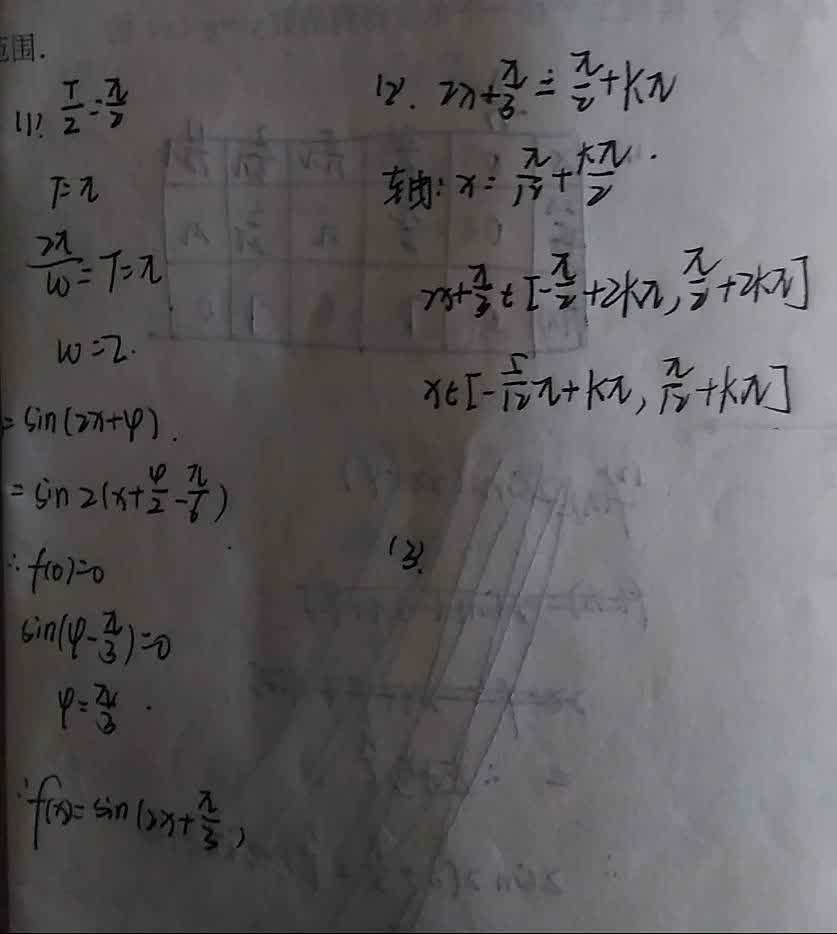 范围.
(1). T/2=π/2
T=π
2π/w=T=π
w=2.
=sin(2x+φ).
=sin2(x+φ/2-π/6)
∴f(0)=0
sin(φ-π/3)=0
φ=π/3.
∴f(x)=sin(2x+π/3)
(2). 2x+π/3=π/2+kπ
轴: x=π/12+kπ/2.
2x+π/3∈[-π/2+2kπ,π/2+2kπ]
x∈[-5/12π+kπ,π/12+kπ]
(3).